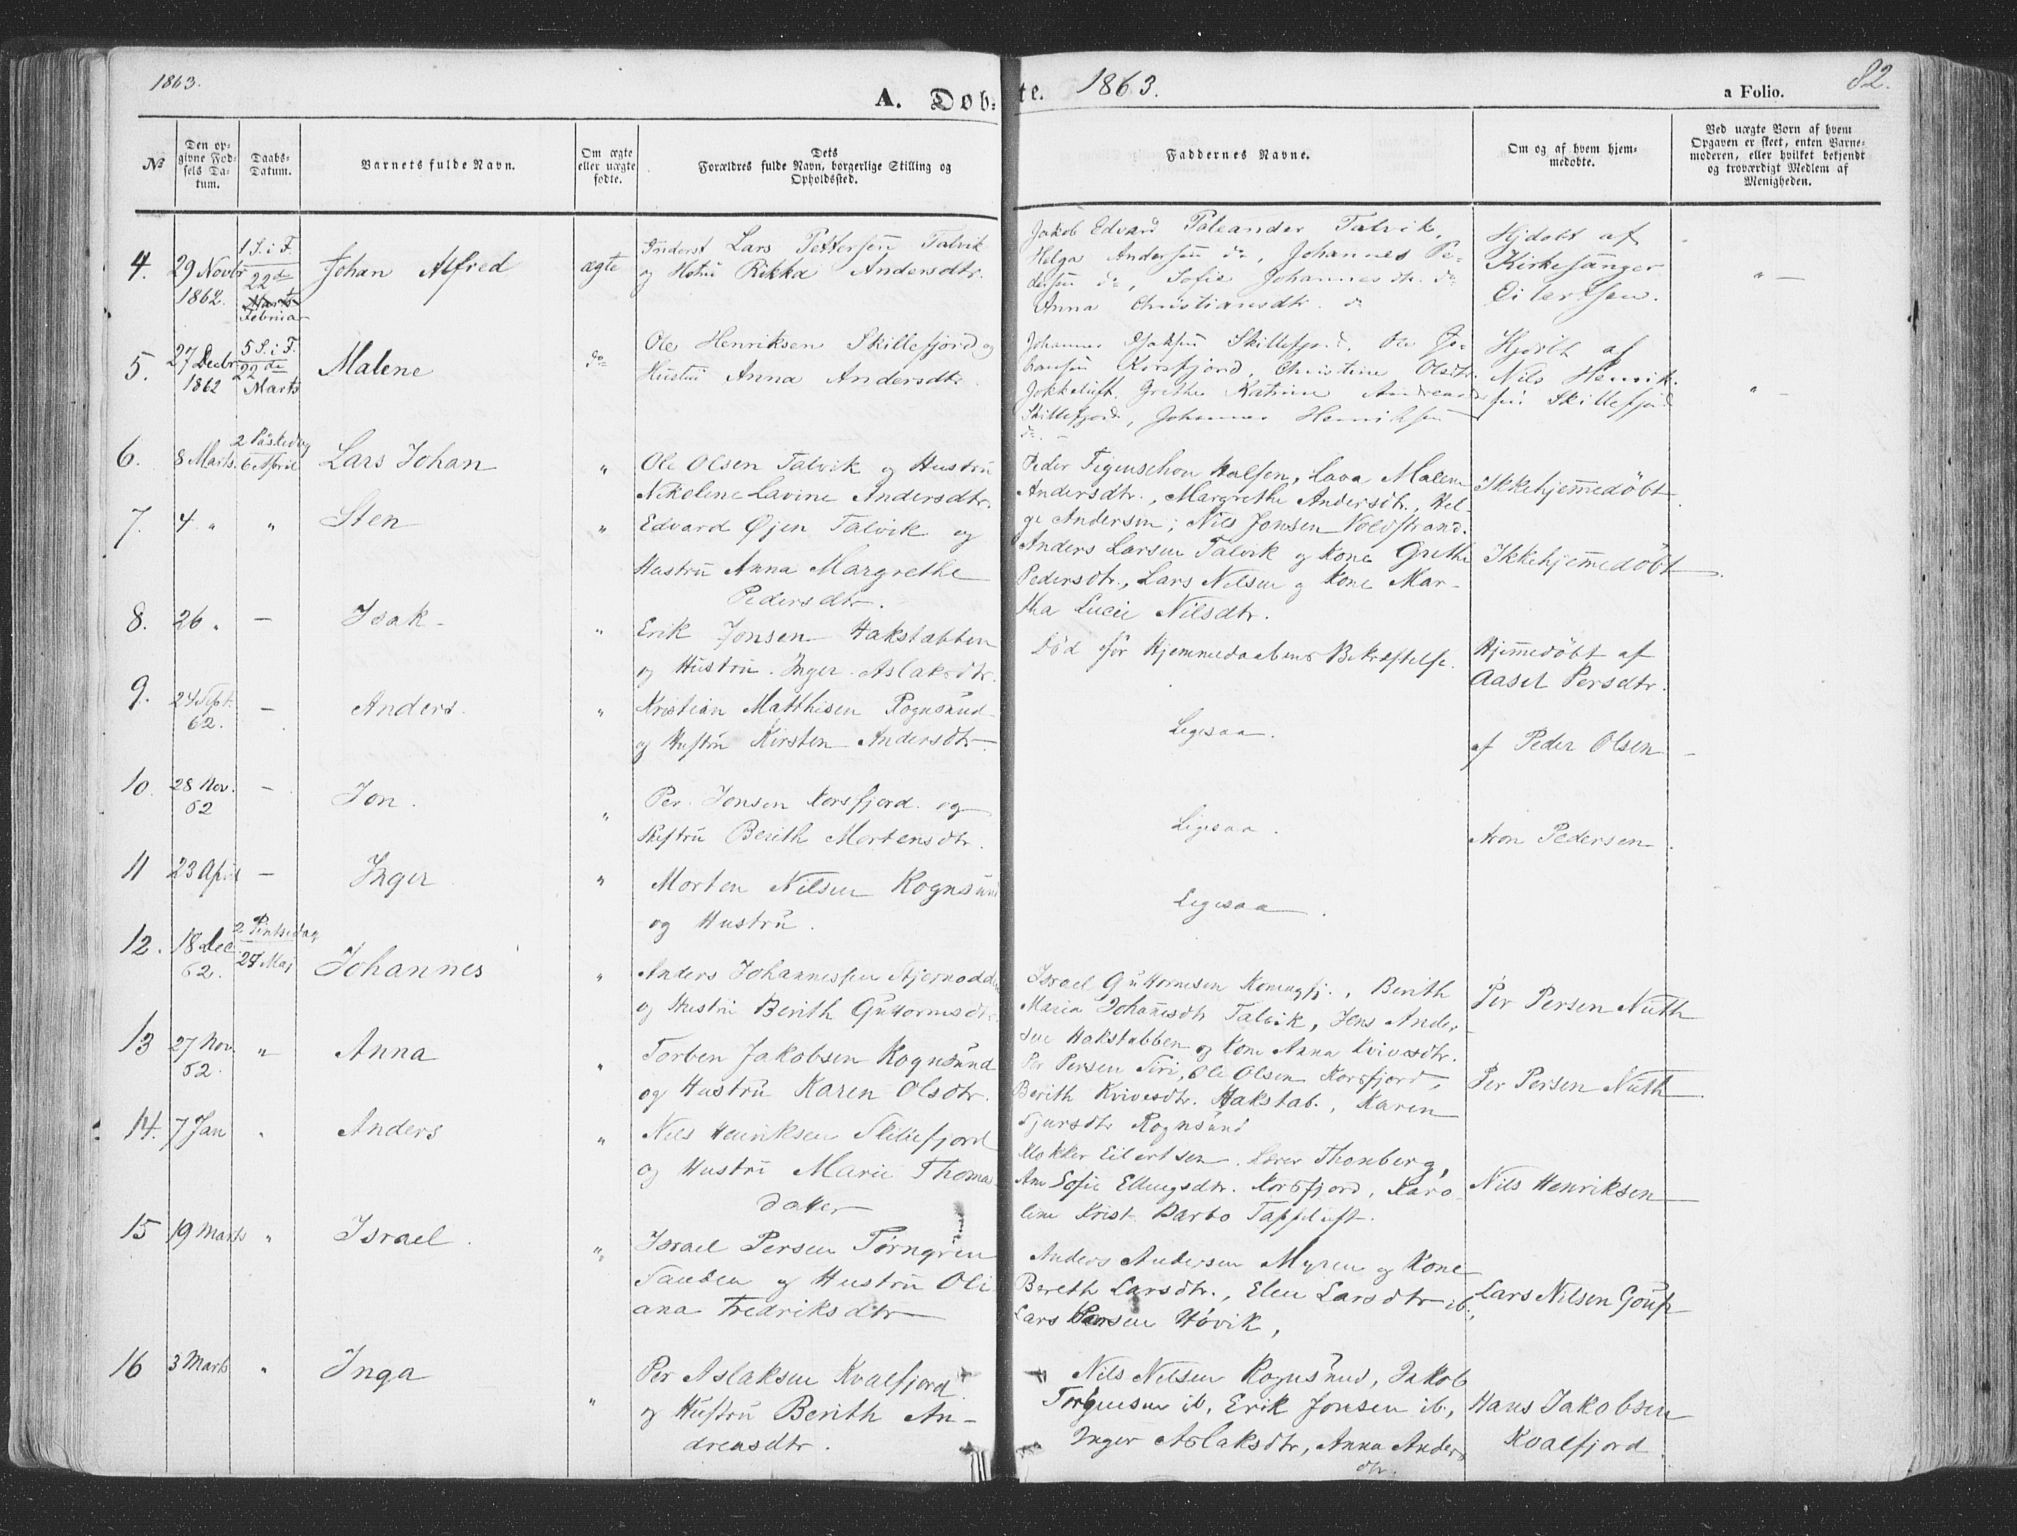 1863.
A. Dob-
te. 1863.
a Folio. 82.
No
Den opgivne Fødsels Datum.
Daabs-Datum.
Barnets fulde Navn.
Om ægte eller uægte fødte.
Dets Forældres fulde Navn, borgerlige Stilling og Opholdssted.
Faddernes Navne.
Om og af hvem hjemmedøbte.
Ved uægte Børn af hvem Opgaven er skeet, enten Barnemoderen, eller hvilket bekjendt og troværdigt Medlem af Menigheden.
4. 29 Novbr 1862. 1 S. i F. 22de Marts Februar
Johan Alfred
ægte
Inderst Lars Pettersen Talvik
og Hstru Rikka Andersdtr.
Jakob Edvard Paleander Talvik,
Helga Andersen do, Johannes Pe-
dersen do, Sofie Johannesdtr. do
Anna Christiansdtr. do
Hjdøbt af
Kirkesanger
Eilertsen.
5. 27 Decbr 1862 5 S. i F. 22de Marts
Malene
do
Ole Henriksen Skillefjord og
Hustru Anna Andersdtr
Johannes Isaksen Skillefjord, Ole Jo-
hansen Korsfjord, Christine Olsdtr
Jokkeluft, Grethe Katrine Andreasd
Skillefjord, Johannes Henriksen
do.
Hjdøbt af
Nils Henrik-
sen Skillefjord
6. 8 Marts. 2 Paaskedag 6 April
Lars Johan
"
Ole Olsen Talvik og Hustru
Nikoline Lavine Andersdtr.
Peder Figenschou Halsen, Lava Malene
Andersdtr., Margrethe Andersdtr., Hel-
ge Andersen; Nils Jonsen Voldstrand.
Ikkehjemmedøbt
7. 4 " "
Sten
"
Edvard Øjen Talvik og
Hustru Anna Margrethe
Pedersdtr.
Anders Larsen Talvik og Kone Grethe
Pedersdtr., Lars Nilsen og Kone Mar-
tha Lucie Nilsdtr.
Ikkehjemmedøbt
8. 26 " —
Isak
"
Erik Jonsen Hakstabben
og Hustru Inger Aslaksdtr.
Død før Hjemmedaabens Bekræftelse.
Hjemmedøbt af
Aaset Persdtr.
9. 24 Sept. 62. —
Anders.
"
Kristian Matthisen Rognsund
og Hustru Kirsten Andersdtr.
Ligesaa.
af Peder Olsen
10. 28 Nov. 62 —
Jon.
"
Per Jonsen Korsfjord og
Hustru Berith Mortensdtr.
Ligesaa.
Aron Pedersen
11 23 April —
Inger
"
Morten Nilsen Rognsund
og Hustru.
Ligesaa.
12. 18 Dec. 62. 2 Pintsedag 24 Maj
Johannes
"
Anders Johannessen Stjernodden
og Hustru Berith Guttormsdtr
Israel Guttormsen Komagfj., Berith
Maria Johannesdtr Talvik, Jens Ander-
sen Hakstabben og Kone Anna Kvivesdtr.
Per Persen Nuth
13 27 Nov. 62. "
Anna
"
Torben Jakobsen Rognsund
og Hustru Karen Olsdtr.
Per Persen Siri, Ole Olsen Korsfjord,
Berith Kvivesdtr. Hakstab., Karen
Sjursdtr Rognsund
Per Persen Nuth
14. 7 Jan "
Anders
"
Nils Henriksen Skillefjord
og Hustru Marie Thoma-
datter
Mokker Eilertsen, Lærer Thonberg,
Ane Sofie Ellingsdtr. Korsfjord, Karo-
line Krist. Barbo Tappeluft.
Nils Henriksen
15 19 Marts "
Israel.
"
Israel Persen Törngren
Sauben og Hustru Oli-
ana Fredriksdtr
Anders Andersen Myren og Kone
Berith Larsdtr., Elen Larsdtr ib.,
Lars Larsen Høvik,
Lars Nilsen Goup
16 3 Marts "
Inga
"
Per Aslaksen Kvalfjord.
og Hustru Berith An-
dreasdtr.
Nils Nilsen Rognsund, Jakob
Torgensen ib., Erik Jonsen ib.,
Inger Aslaksdtr, Anna Anders
dtr.
Hans Jakobsen
Kvalfjord